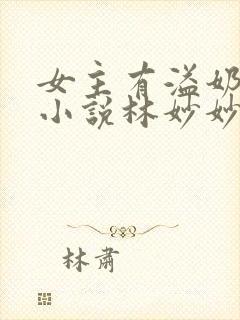 女主有溢奶
小说林妙妙
林肃